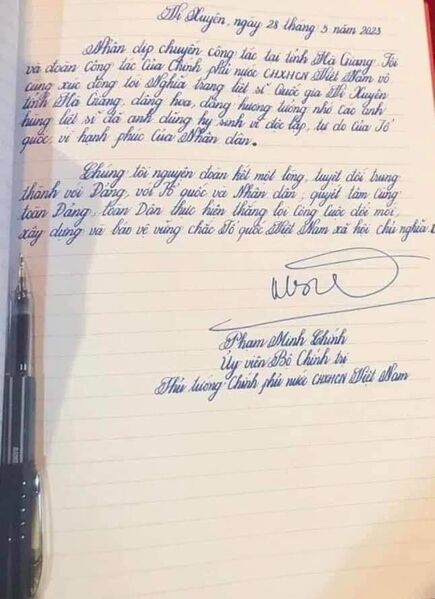 Vị Xuyên, ngày 28 tháng 5 năm 2023
Nhân dịp chuyến công tác tại tỉnh Hà Giang. Tôi
và đoàn Công tác Của Chính phủ nước CHXHCN Việt Nam vô
cùng xúc động tới Nghĩa trang liệt sĩ Quốc gia Vị Xuyên
tỉnh Hà Giang, dâng hoa, dâng hương tưởng nhớ các anh
hùng liệt sĩ đã anh dũng hy sinh vì độc lập, tự do Của Tổ
quốc, vì hạnh phúc Của Nhân dân.
Chúng tôi nguyện đoàn kết một lòng, tuyệt đối trung
thành với Đảng, với Tổ quốc và Nhân dân; quyết tâm cùng
toàn Đảng, toàn Dân thực hiện thắng lợi Công Cuộc đổi mới,
xây dựng và bảo vệ vững chắc Tổ quốc Việt Nam xã hội chủ nghĩa
Phạm Minh Chính
Ủy viên Bộ Chính trị
Thủ tướng Chính phủ nước CHXHCN Việt Nam